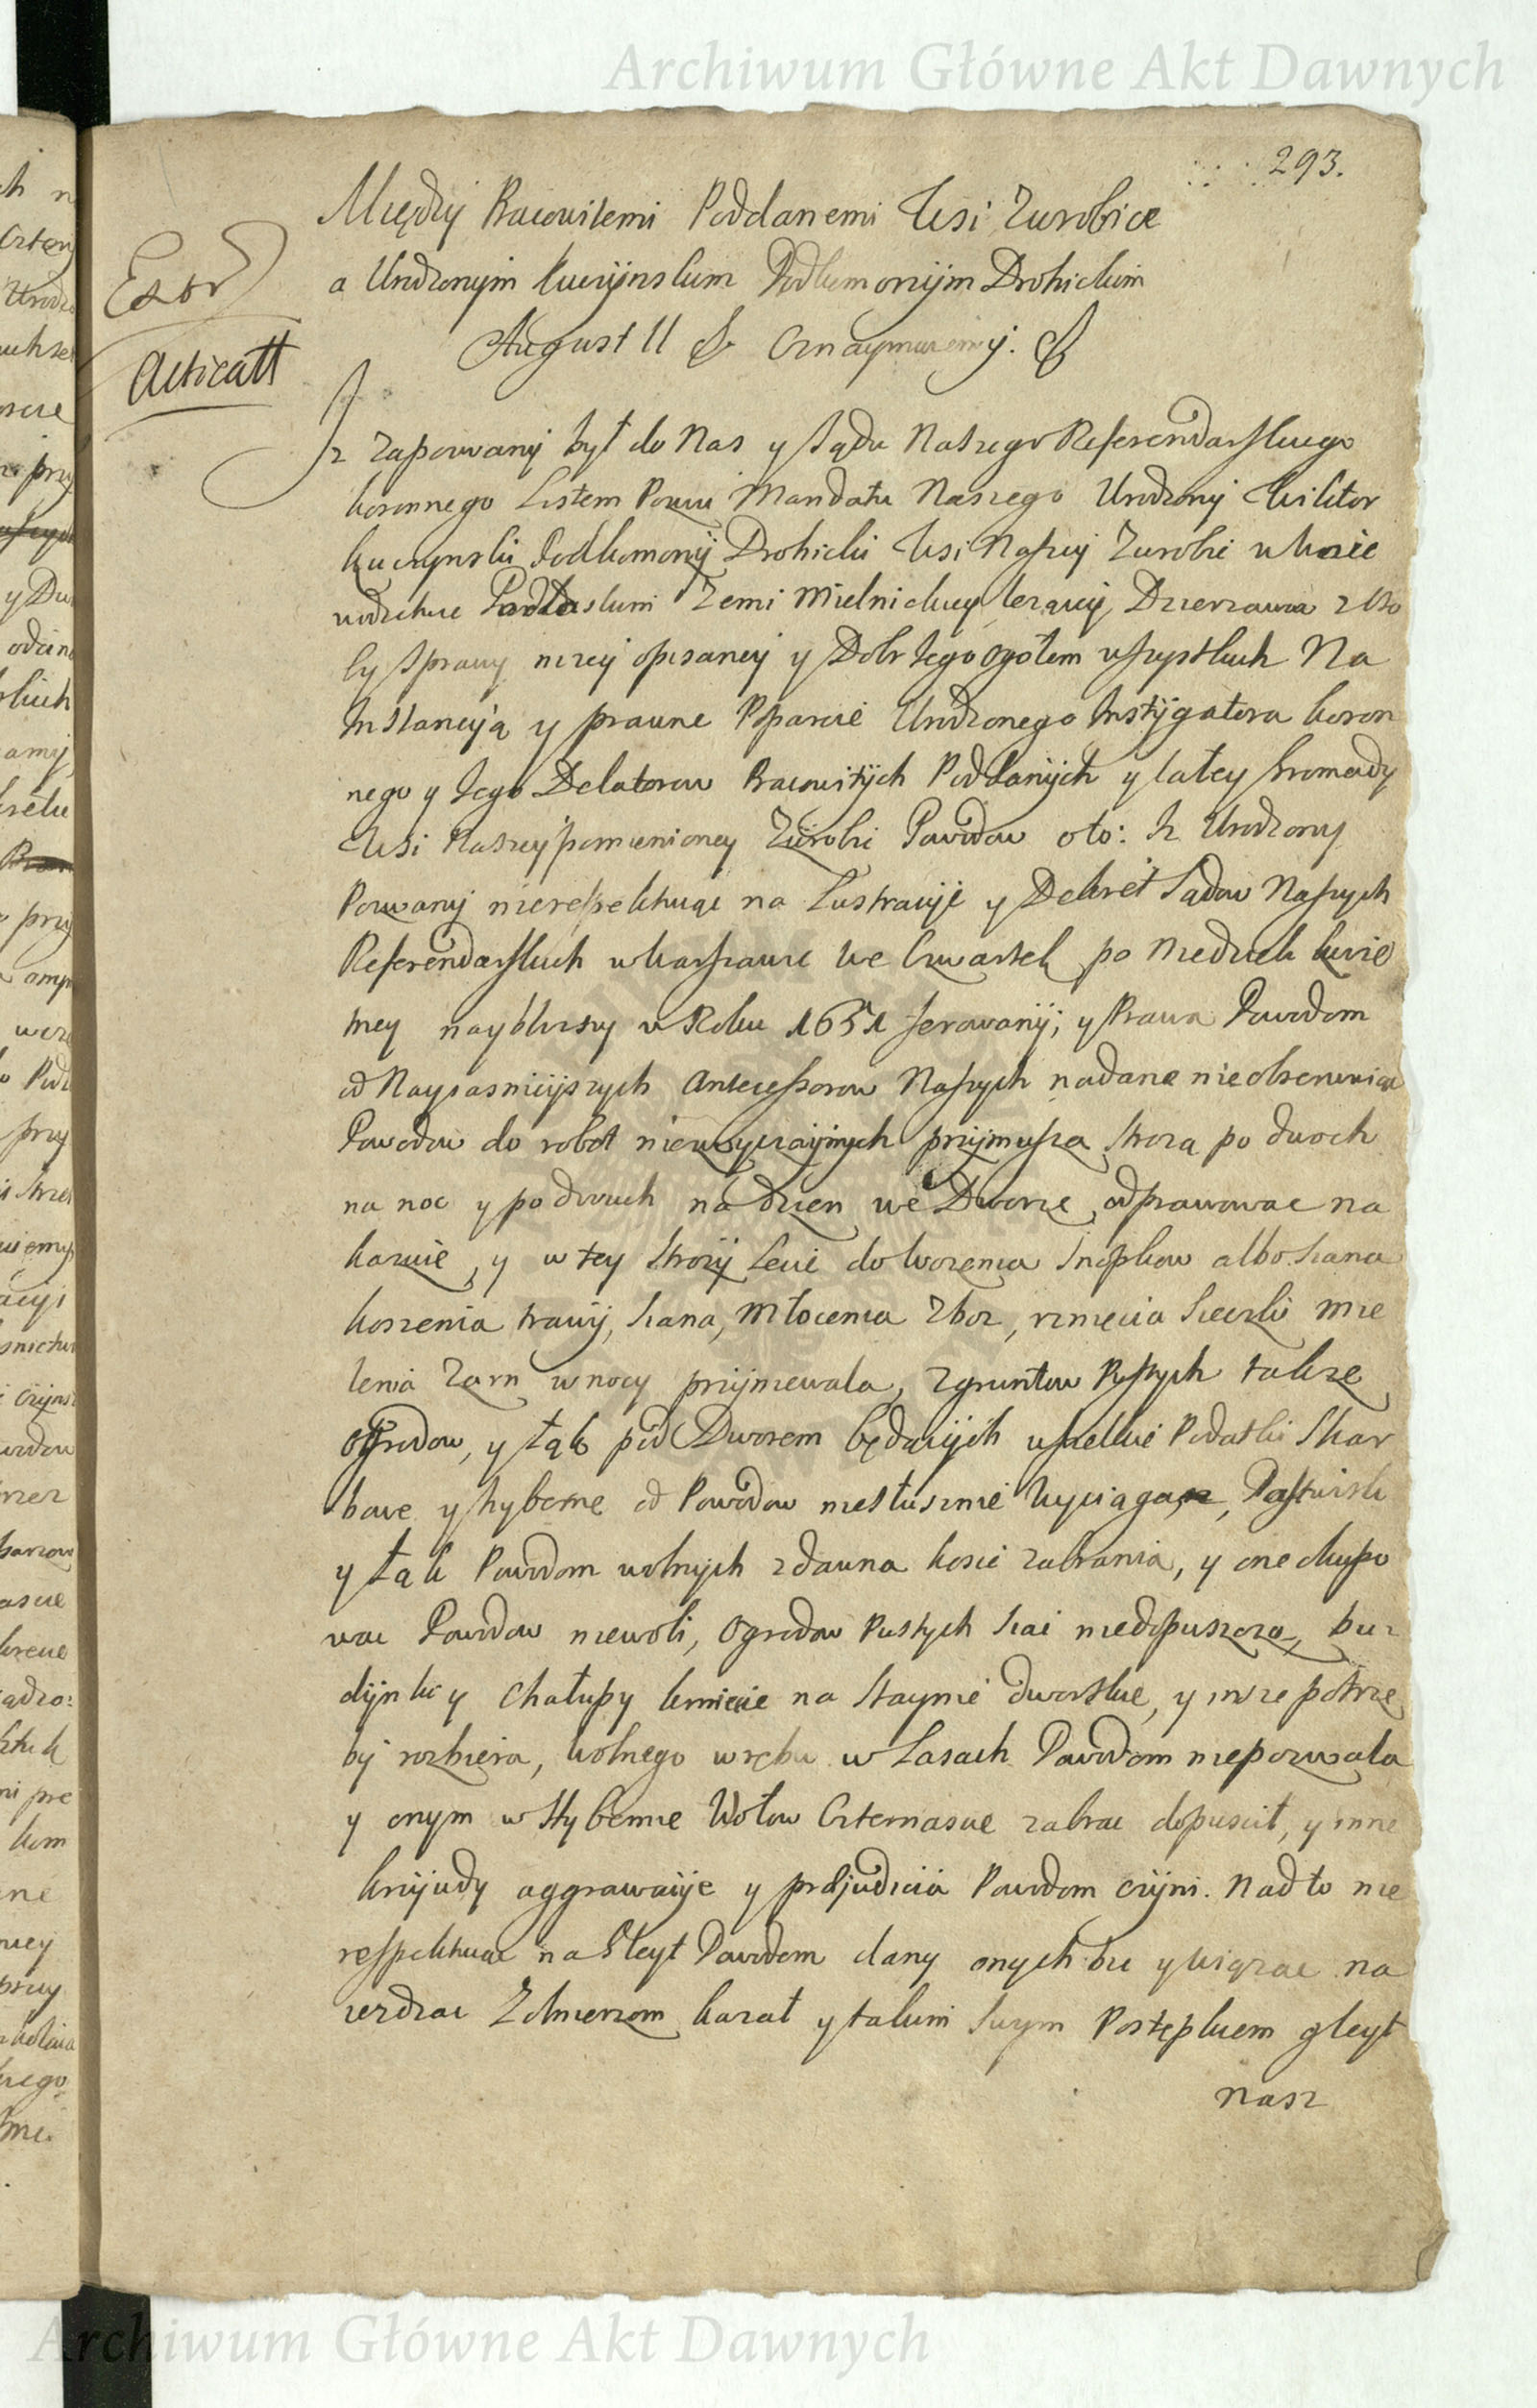 Archiwum Główne Akt Dawnych
293.
Między Pracowitemi Poddanemi Wsi Zurobice
a Urodzonym Kuczynskim Podkomorzym Drohickim
August II & Oznaymuiemy. &
Extr
Acticatt
Iz zapozwany był do Nas y Sądu Naszego Referendarskiego
koronnego Listem Pozwu Mandatu Naszego Urodzony Wiktor
Kuczynski Podkomorzy Drohicki Wsi Naszey Zurobic w Woie
wodztwie Podlaskim Zemi Mielnickiey lezącey Dzierzawca z Oso
by sprawy nizey opisaney y Dobr Jego ogołem wszystkich Na
Instancyą y prawne Poparcie Urodzonego Instygatora koron
nego y Jego Delatorow Pracowitych Poddanych y całey Gromady
Wsi Naszey pomienioney Zurobic Powodow oto: Iz Urodzony
Pozwany nierespektuiąc na Lustracye y Dekret Sądow Naszych
Referendarskich w Warszawie we Czwartek po Niedzieli kwie
tney naybliszy w Roku 1651 ferowany; y Prawa Powodom
od Nayiasnieyszych Antecessorow Naszych nadane nieobserwuiąc
Powodow do robot niezwyczaynych przymusza Stroza po dwoch
na noc y po dwuch na dzien we Dworze odprawowac na
kazuie, y w tey Strozy Lecie do wozenia Snopkow albo siana
koszenia trawy, siana, Młocenia Zboz, rznięcia Sieczki mie
lenia Zarn w nocy przyniewala, z gruntow Pustych takze
Ogrodow, y Łąk pod Dworem będących wszelkie Podatki Skar
bowe y hyberne od Powodow niesłusznie Wyciąga, Pastwisk
y Łąk Powodom wolnych zdawna kosic zabrania, y one okupo
wac Powodow niewoli, Ogrodow Pustych siac niedopuszcza, bu
dynki y Chałupy kmiecie na Staynie dworskie, y insze potrze
by rozbiera, Wolnego wrębu w Lasach Powodom niepozwala
y onym w Hybernie Wołow Czternascie zabrac dopuscił, y inne
krzywdy aggrawacye y prejudicia Powodom czyni. Nad to nie
respektuiąc na Gleyt Powodom dany onych bic y wiązac na
iezdzac Zołnierzom kazał y takim swym Postępkiem gleyt
nasz
Archiwum Główne Akt Dawnych